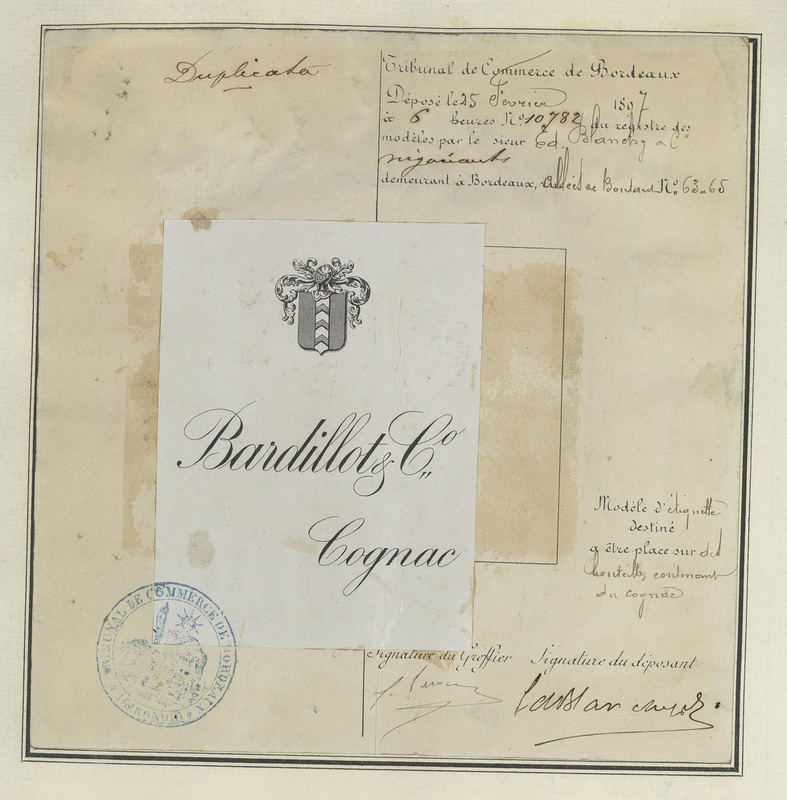 Duplicata
Tribunal de Commerce de Bordeaux
Déposé le 25 Fevrier 1897
à 6 heures No 10782 du registre des
modèles par le sieur Ed. Blanchy & Co
négociants
demeurant à Bordeaux, No 63-65
Bardillot & Co
Cognac
Modèle d'étiquette
destiné
a être place sur des
bouteilles contenant
du cognac
TRIBUNAL DE COMMERCE DE BORDEAUX
(GIRONDE)
Signature du Greffier Signature du déposant